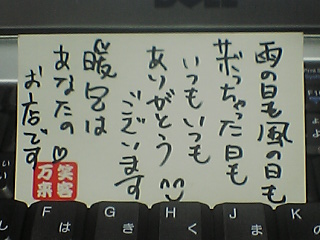 雨の日も風の日も
サボっちゃった日も
いつもいつも
ありがとう
ございます
暖宅は
あなたの♡
お店です
笑客
万来
F は
G き
H く
J ま
K の